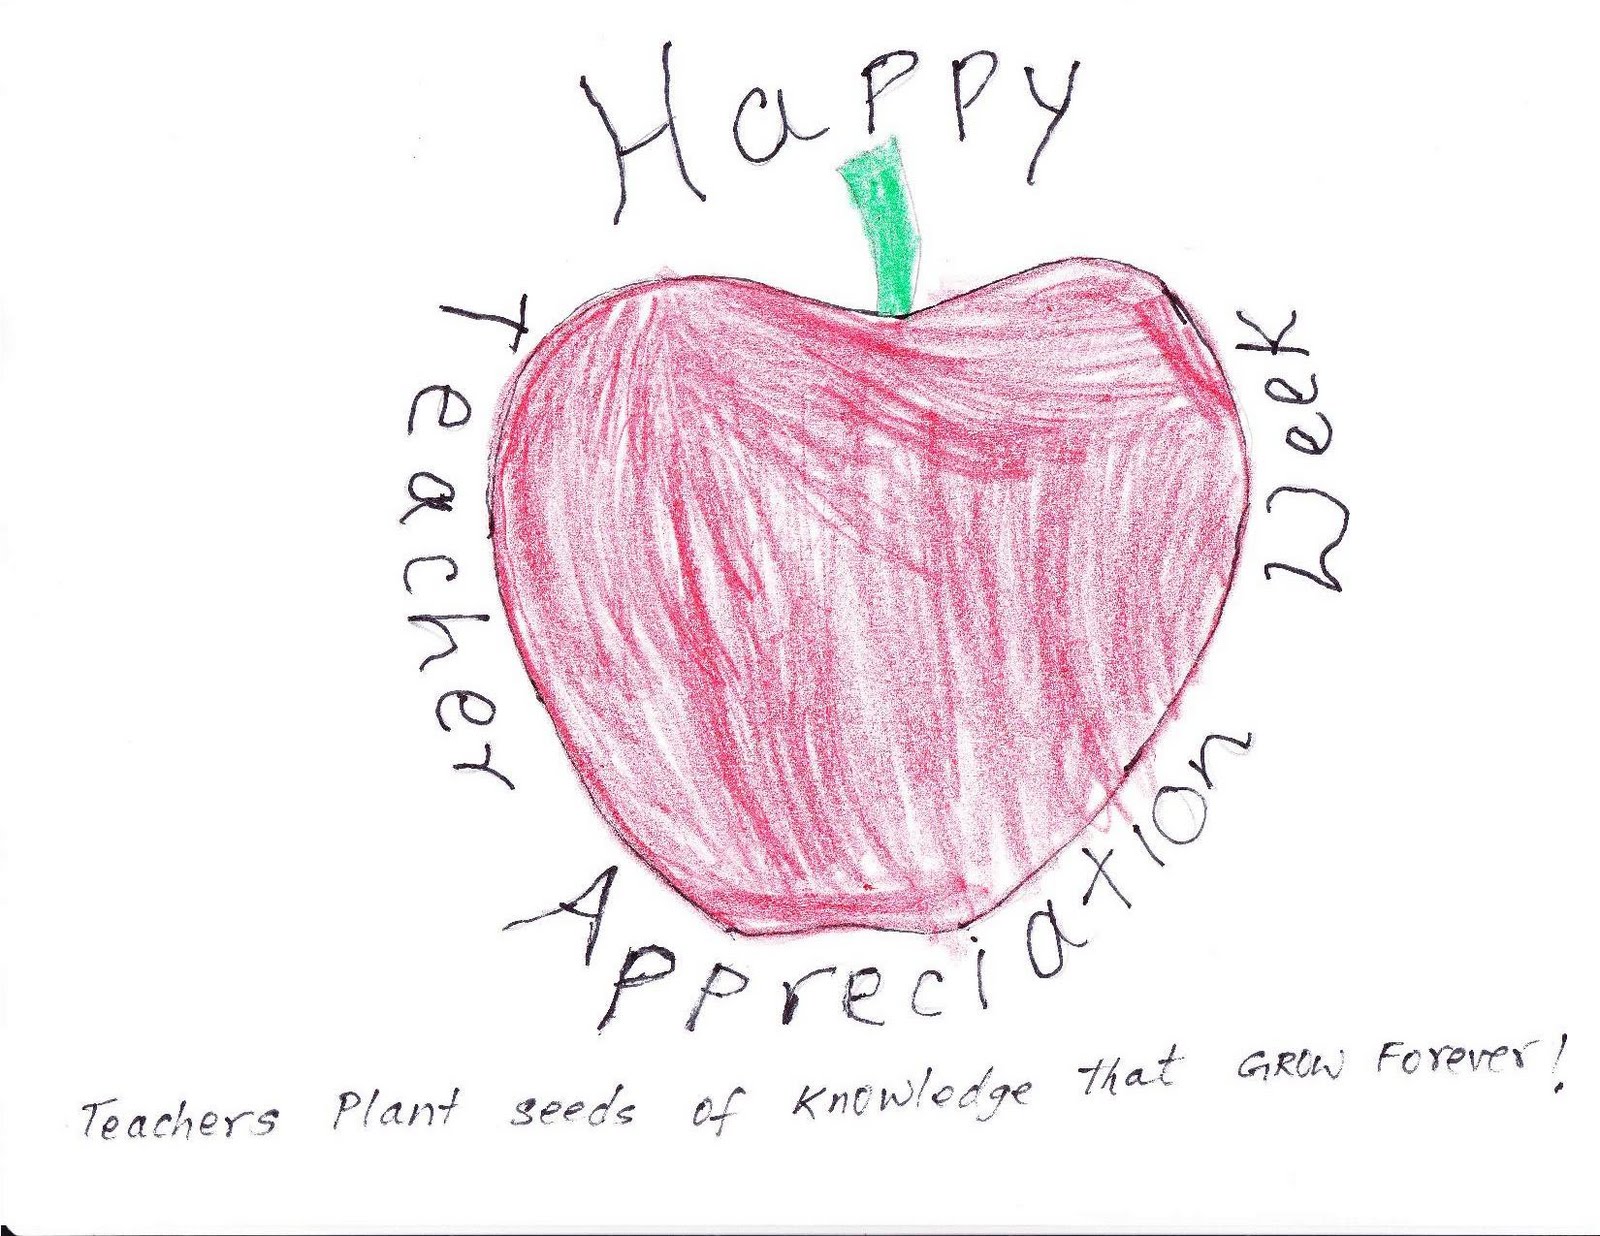 Happy
Teacher
Appreciation
Week
Teachers Plant seeds of Knowledge that GROW Forever!